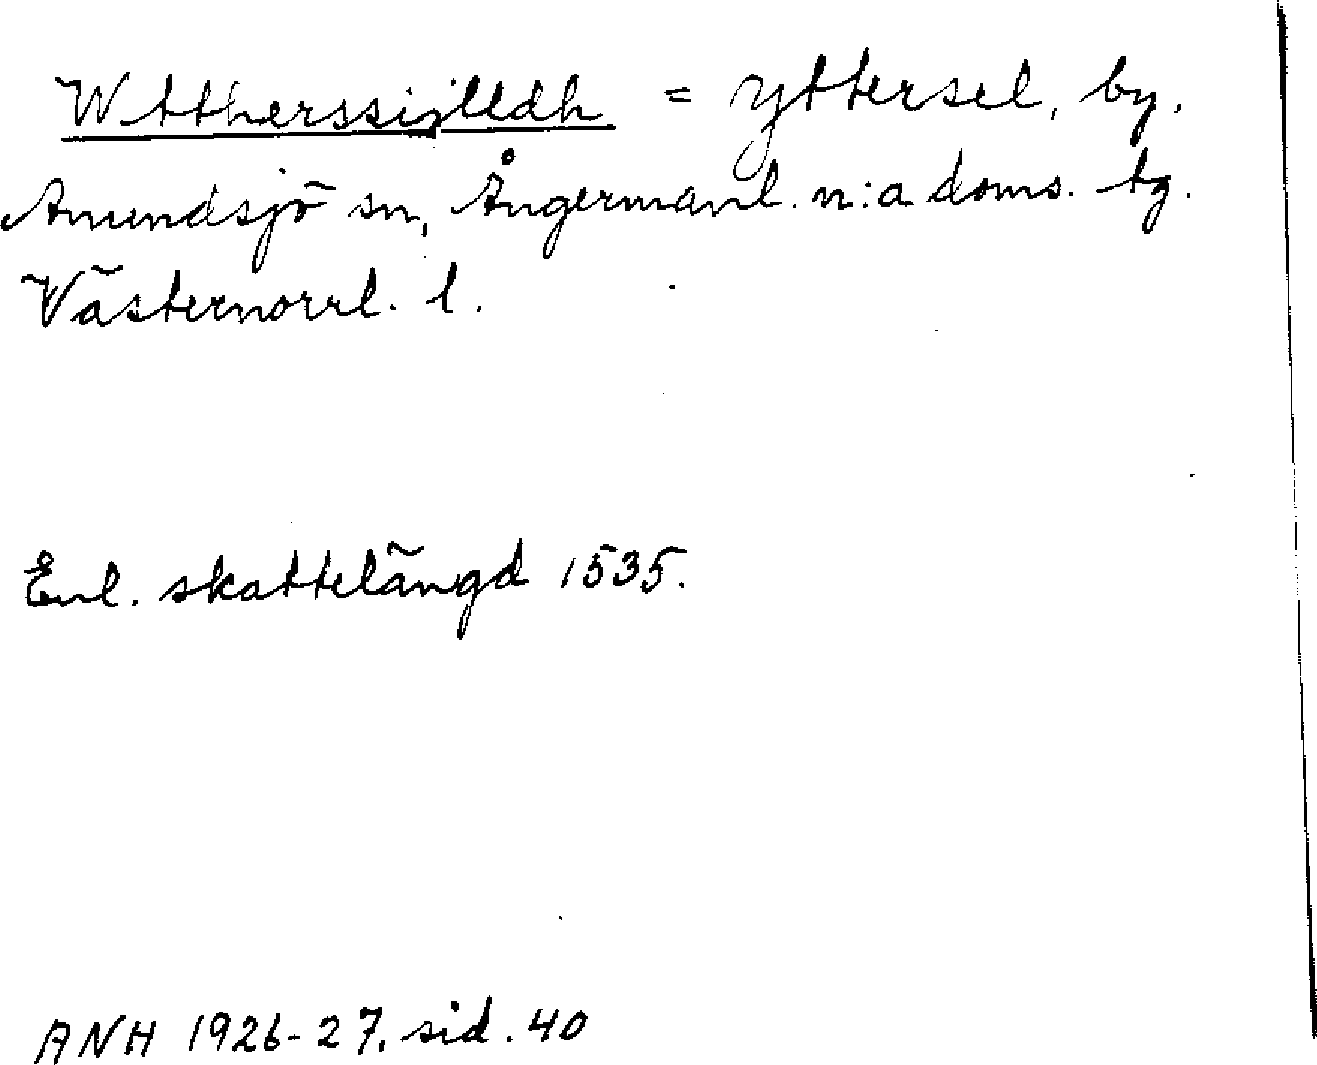 Wttherssijlldh = Yttersel, by.
Anundsjö sn, Ångermanl. n:a doms. tg.
Västernorrl. l.
Enl. skattelängd 1535.
ANH 1926-27, sid. 40